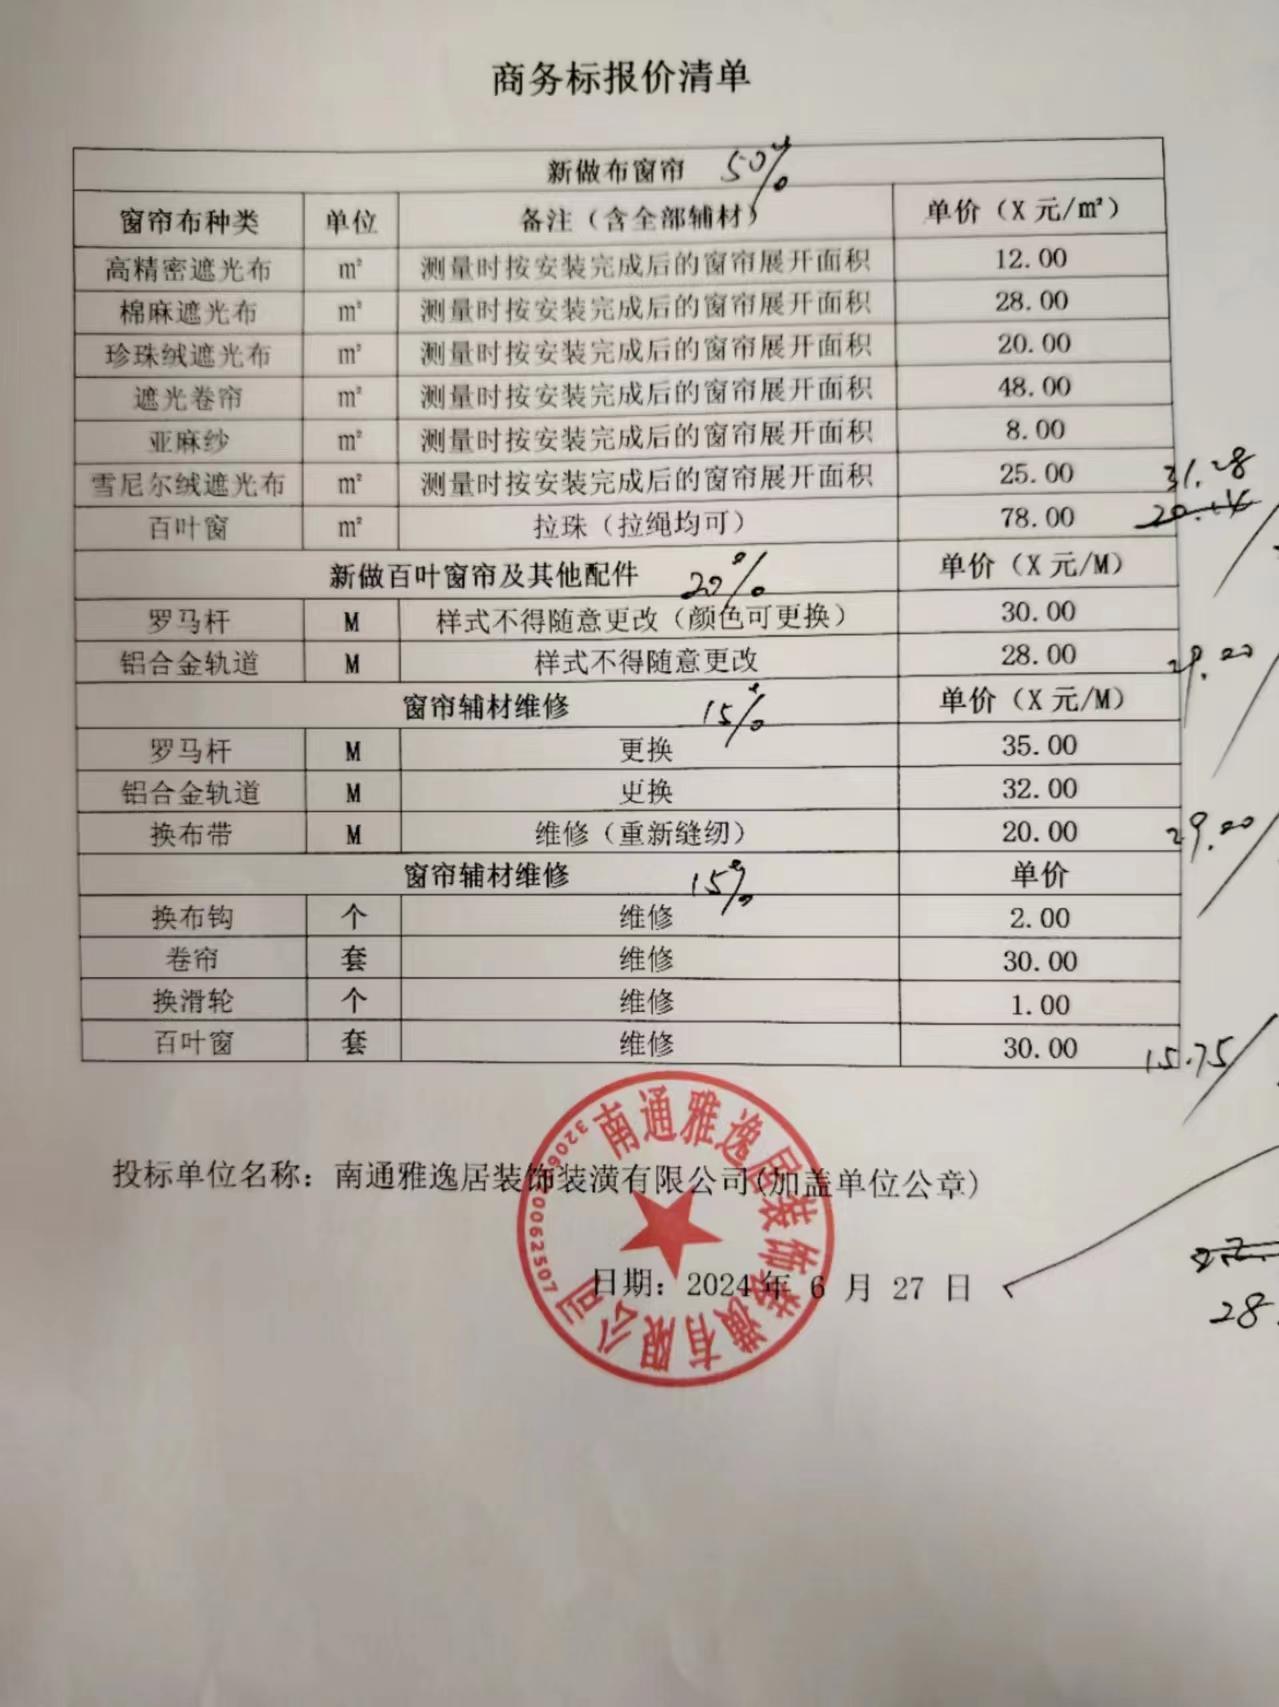 商务标报价清单
新做布窗帘 50%
窗帘布种类 单位 备注（含全部辅材） 单价（X 元/㎡）
高精密遮光布 ㎡ 测量时按安装完成后的窗帘展开面积 12.00
棉麻遮光布 ㎡ 测量时按安装完成后的窗帘展开面积 28.00
珍珠绒遮光布 ㎡ 测量时按安装完成后的窗帘展开面积 20.00
遮光卷帘 ㎡ 测量时按安装完成后的窗帘展开面积 48.00
亚麻纱 ㎡ 测量时按安装完成后的窗帘展开面积 8.00
雪尼尔绒遮光布 ㎡ 测量时按安装完成后的窗帘展开面积 25.00 31.28
百叶窗 ㎡ 拉珠（拉绳均可） 78.00
新做百叶窗帘及其他配件 20% 单价（X 元/M）
罗马杆 M 样式不得随意更改（颜色可更换） 30.00
铝合金轨道 M 样式不得随意更改 28.00 29.00
窗帘辅材维修 15% 单价（X 元/M）
罗马杆 M 更换 35.00
铝合金轨道 M 更换 32.00
换布带 M 维修（重新缝纫） 20.00 29.00
窗帘辅材维修 15% 单价
换布钩 个 维修 2.00
卷帘 套 维修 30.00
换滑轮 个 维修 1.00
百叶窗 套 维修 30.00 15.75
投标单位名称：南通雅逸居装饰装潢有限公司(加盖单位公章)
日期：2024 年 6 月 27 日
28.
南通雅逸居装饰装潢有限公司